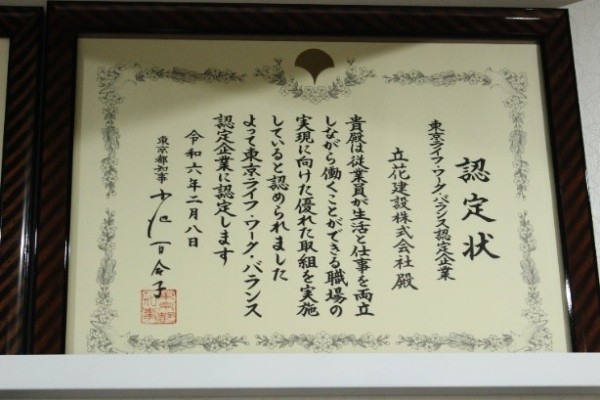 認定状
東京ライフ・ワーク・バランス認定企業
立花建設株式会社 殿
貴殿は従業員が生活と仕事を両立
しながら働くことができる職場の
実現に向けた優れた取組を実施
していると認められました
よって東京ライフ・ワーク・バランス
認定企業に認定します
令和六年二月八日
東京都知事 小池百合子